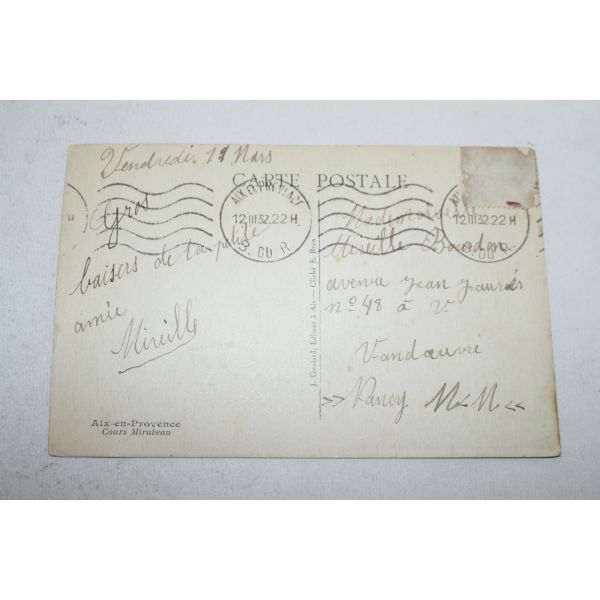 Vendredi 11 Mars
CARTE POSTALE
12 III 32.22H
12 III 32.22H
Gros
baisers de ta petite
amie
Mireille
Mademoiselle
Mireille Bourdon
avenue Jean Jaurès
nº 48 à V
Vandœuvre
»» Nancy M&M. «
J. Goulard, Editeur à Aix. — Cliché E. Bous
Aix-en-Provence
Cours Mirabeau